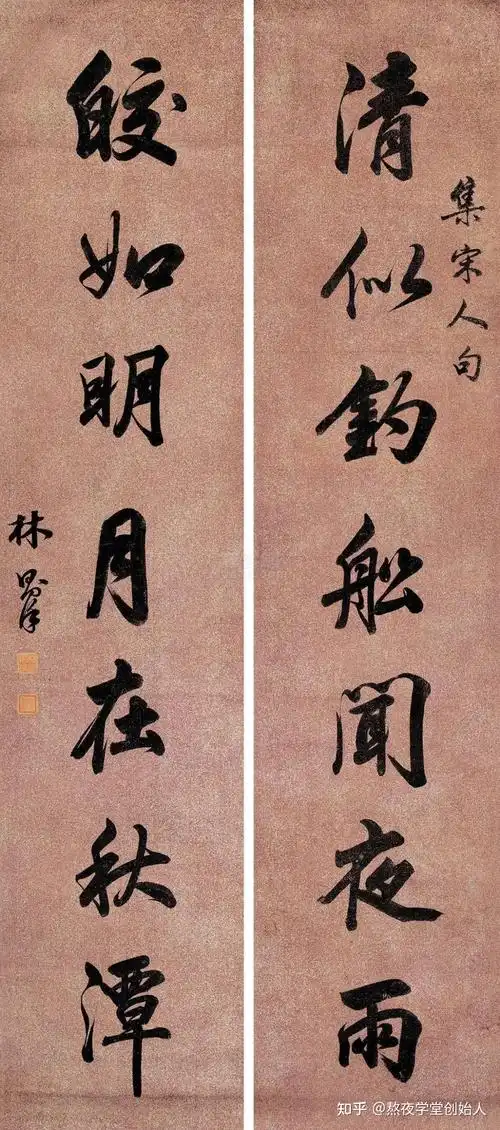 集宋人句
清似釣船聞夜雨
皎如明月在秋潭
林則徐
知乎 @熬夜学堂创始人